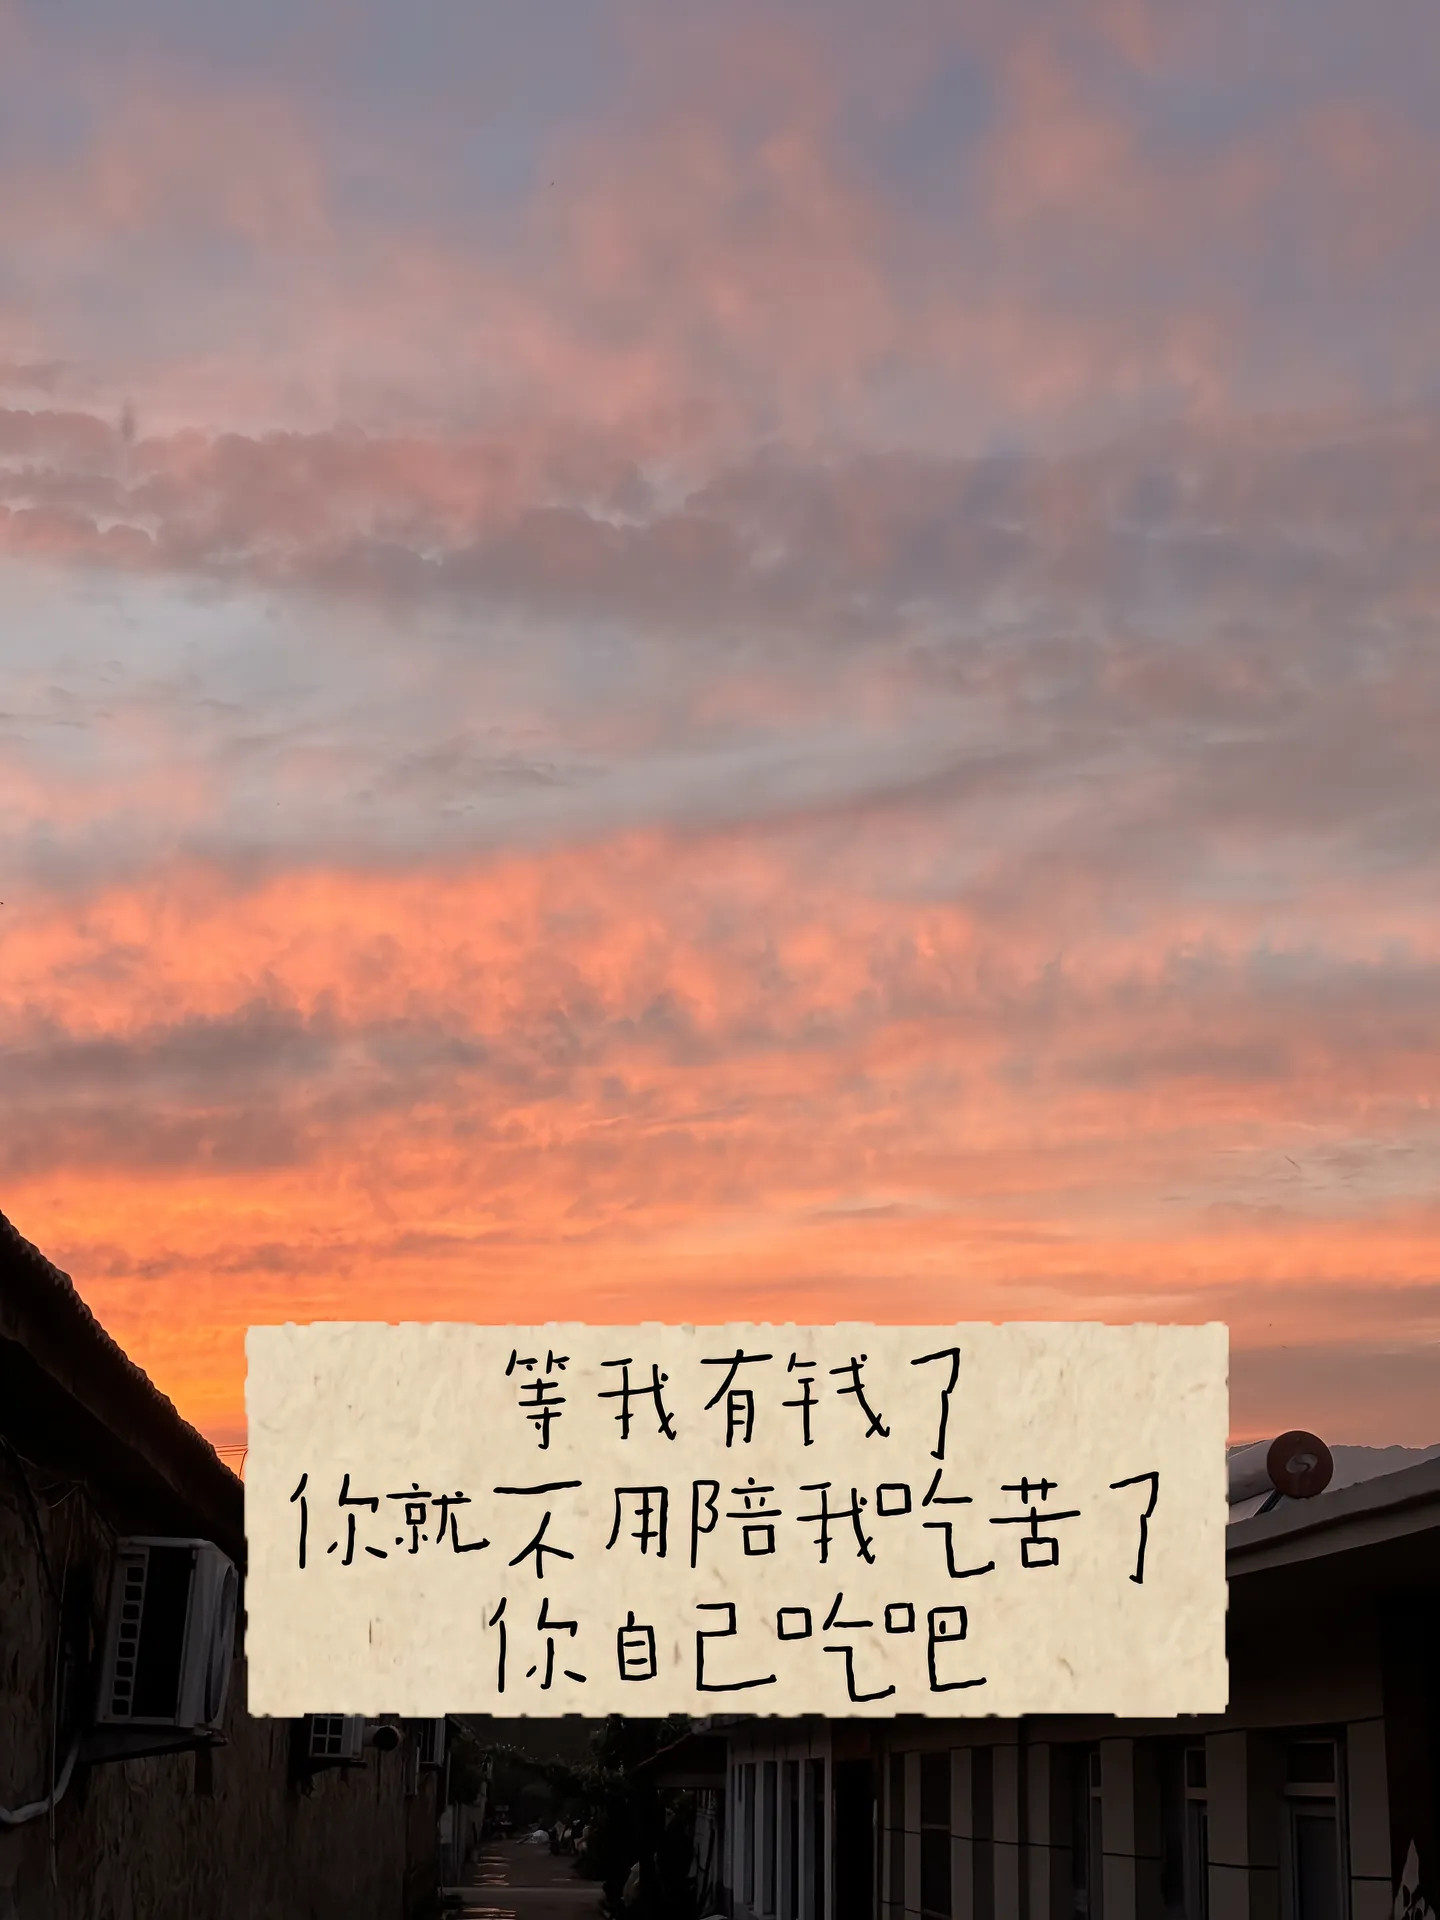 等我有钱了
你就不用陪我吃苦了
你自己吃吧